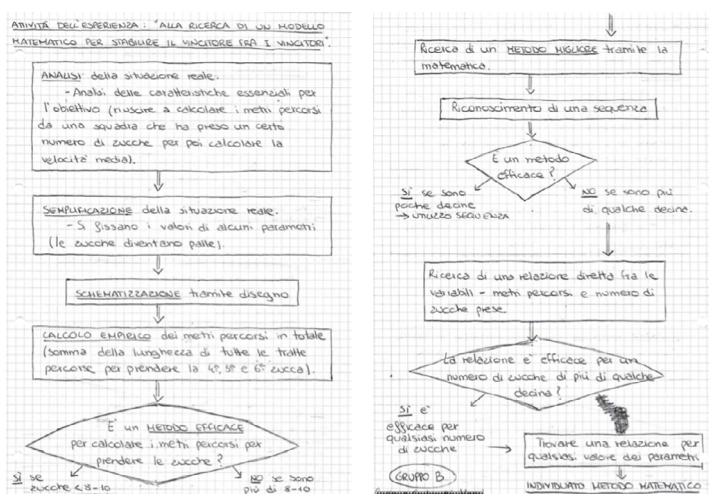 ATTIVITÀ DELL'ESPERIENZA: "ALLA RICERCA DI UN MODELLO
MATEMATICO PER STABILIRE IL VINCITORE FRA I VINCITORI".
ANALISI della situazione reale.
- Analisi delle caratteristiche essenziali per
l'obiettivo (riuscire a calcolare i metri percorsi
da una squadra che ha preso un certo
numero di zucche per poi calcolare la
velocità media).
SEMPLIFICAZIONE della situazione reale.
- Si fissano i valori di alcuni parametri
(le zucche diventano palle).
SCHEMATIZZAZIONE tramite disegno
CALCOLO EMPIRICO dei metri percorsi in totale
(somma della lunghezza di tutte le tratte
percorse per prendere la 4°, 5° e 6° zucca).
È un METODO EFFICACE
per calcolare i metri percorsi per
prendere le zucche?
SÌ se
zucche < 8-10
NO se sono
più di 8-10
Ricerca di un METODO MIGLIORE tramite la
matematica.
Riconoscimento di una sequenza
È un metodo
efficace?
SÌ se sono
poche decine
→ UTILIZZO SEQUENZA
NO se sono più
di qualche decina.
Ricerca di una relazione diretta fra le
variabili - metri percorsi e numero di
zucche prese
La relazione è efficace per un
numero di zucche di più di qualche
decina?
SÌ è
efficace per
qualsiasi numero
di zucche
Trovare una relazione per
qualsiasi valore dei parametri
GRUPPO B
INDIVIDUATO METODO MATEMATICO